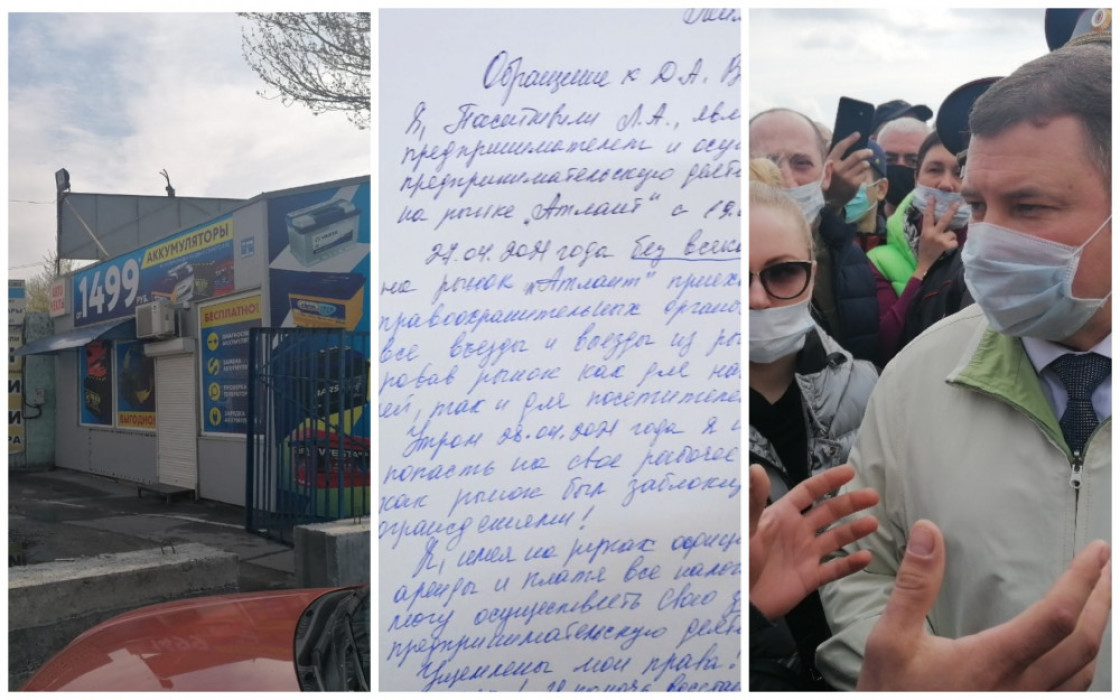 АККУМУЛЯТОРЫ
ОТ 1499 РУБ.
БЕСПЛАТНО!
ВЫГОДНО!
Обращение к Д.А.
Я, Л.А., явл
предпринимателем и осу
предпринимательскую деят
на рынке „Атлант" с 19.
27.04.2021 года без всяк
на рынок „Атлант" приех
правоохранительных орган
все въезды и выезды из ры
ровав рынок как для на
ей, так и для посетителе
Утром 28.04.2021 года я
попасть на свое рабочее
как рынок был заблоки
ограждениями!
Я, имея на руках офиц
аренды и платя все налог
могу осуществлять свою
предпринимательскую деят
Ущемлены мои права!